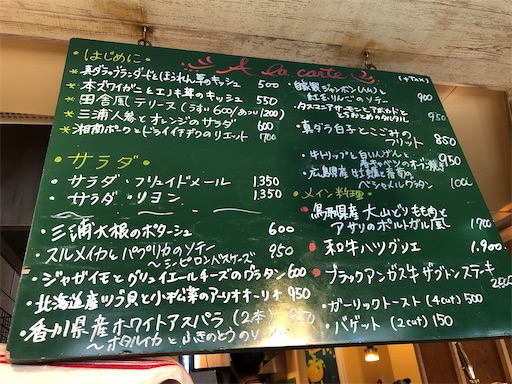 A la carte
(+TAX)
・はじめに・
＊真ダラのブランダードとほうれん草のキッシュ 500
＊本ズワイガニとエノキ茸のキッシュ 550
＊田舎風テリーヌ(うすい600/あつい1200)
＊三浦人参とオレンジのサラダ 600
＊湘南ポークとドライイチヂクのリエット 700
・サラダ・
・サラダ・フリュイドメール 1,350
・サラダ・リヨン 1,350
・三浦大根のポタージュ 600
・スルメイカとパプリカのソテー 950
〜シピロンベスケーズ
・ジャガイモとグリュイエールチーズのグラタン 600
・北海道産ツブ貝と小松菜のアーリオオーリオ 950
・香川県産ホワイトアスパラ(2本)
〜ホタルイカとふきのとうの
・自家製ジャンボン(ハム)と
紅玉りんごのソテー 900
・タスマニアサーモンとアボカドと
のタルタル 950
・真ダラ白子とこごみの
フリット 850
・牛トリップと白いんげんと
950
・広島県産牡蠣と春菊の
ベシャメルグラタン
・メイン料理・
鳥取県産大山どりもも肉と
アサリのポルトガル風 1,700
和牛ハツグリエ 1,900
ブラックアンガス牛ザブトンステーキ
・ガーリックトースト(4cut) 500
・バゲット(2cut) 150